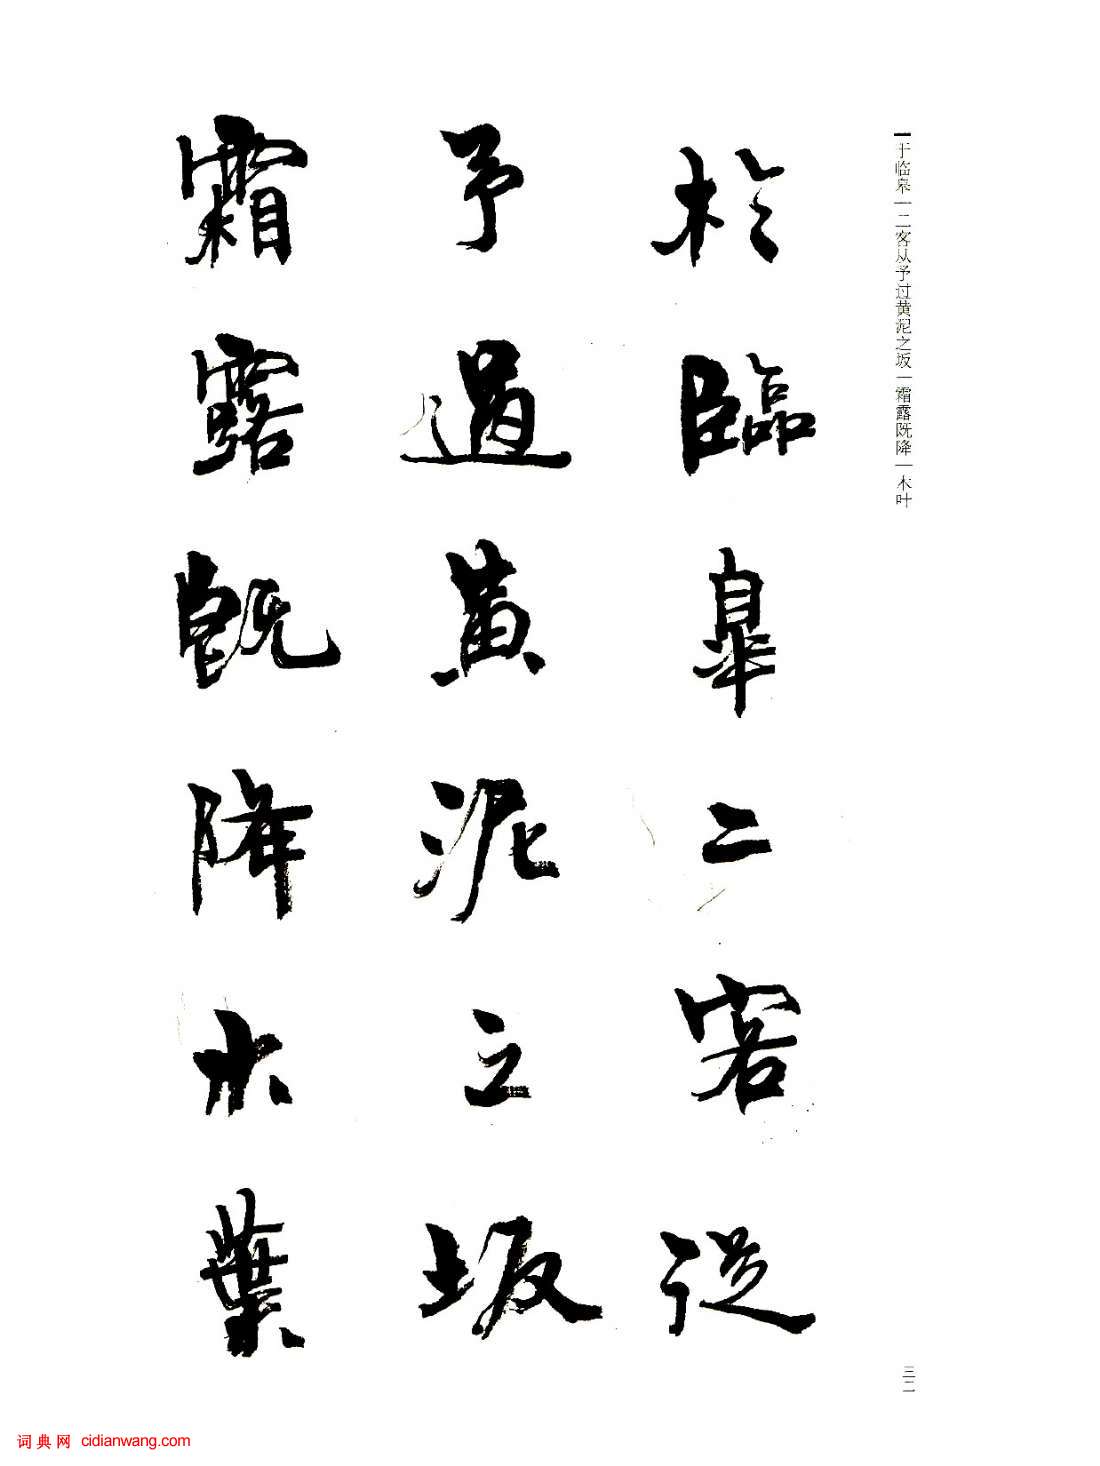 于临皋｜二客从予过黄泥之坂｜霜露既降｜木叶
於臨皐二客從
予過黄泥之坂
霜露既降木葉
三二
词典网 cidianwang.com